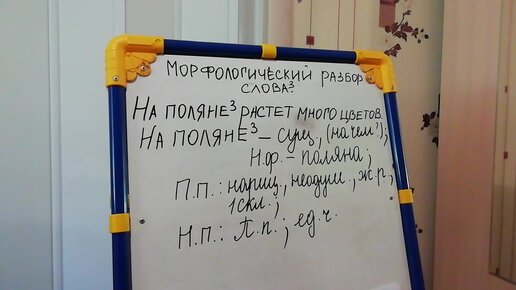 МОРФОЛОГИЧЕСКИЙ РАЗБОР
СЛОВА³
НА ПОЛЯНЕ³ РАСТЕТ МНОГО ЦВЕТОВ.
НА ПОЛЯНЕ³ – сущ., (на чем?);
Н.ф. – поляна;
П.п.: нариц., неодуш., ж.р.,
1 скл.;
Н.П.: П.п.; ед.ч.